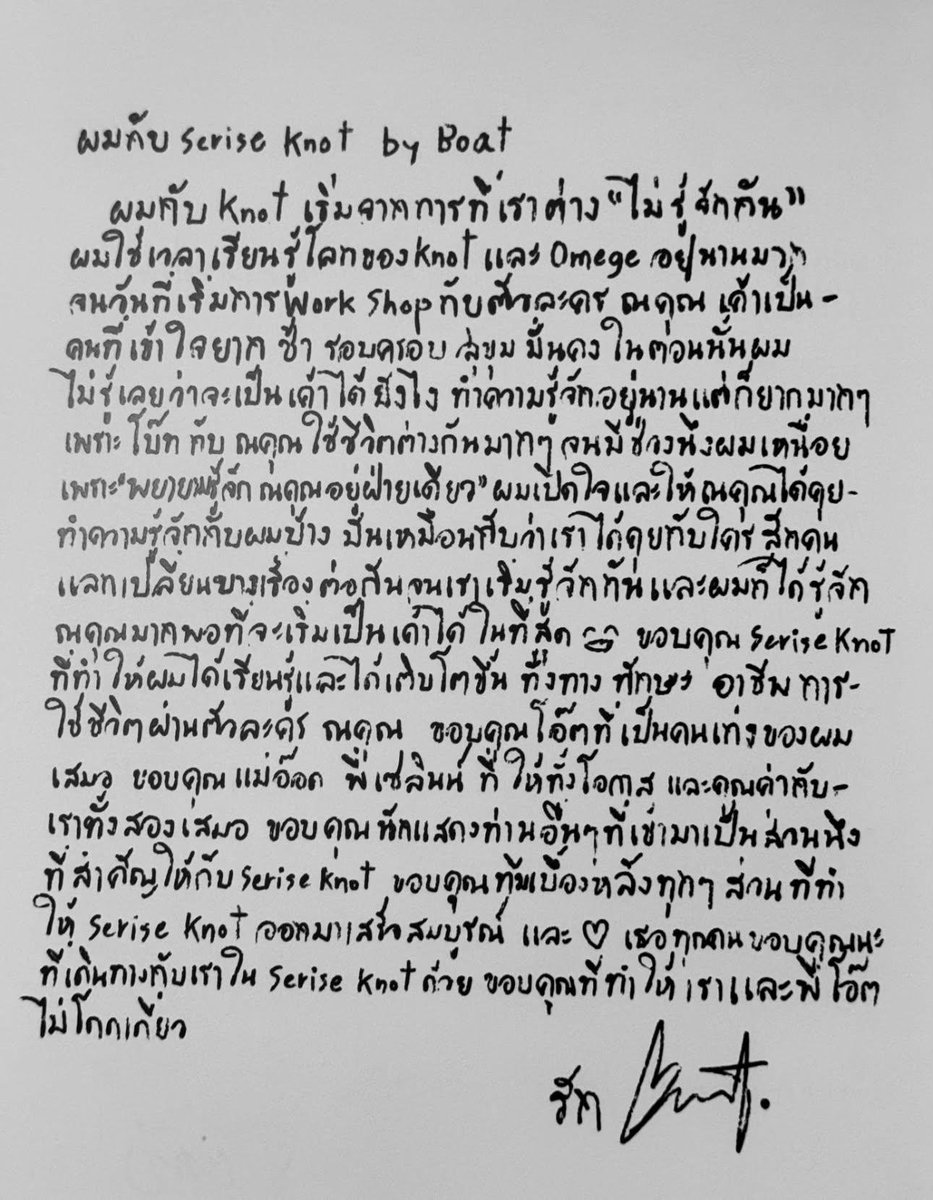 ผมกับ Serise Knot by Boat
ผมกับ Knot เริ่มจากการที่เราต่าง "ไม่รู้จักกัน"
ผมใช้เวลาเรียนรู้โลกของ Knot และ Omege อยู่นานมาก
จนวันที่เริ่มการ Work Shop กับตัวละคร ณคุณ เค้าเป็น-
คนที่เข้าใจยาก ช้า รอบครอบ สุขุม มั่นคง ในต่อนนั้นผม
ไม่รู้เลยว่าจะเป็นเค้าได้ยังไง ทำความรู้จักอยู่นานแต่ก็ยากมากๆ
เพราะ โบ๊ท กับ ณคุณ ใช้ชีวิตต่างกันมากๆ จนมีช่วงนึงผมเหนื่อย
เพราะ"พยายามรู้จัก ณคุณอยู่ฝ่ายเดียว" ผมเปิดใจและให้ณคุณได้คุย-
ทำความรู้จักกับผมบ้าง มันเหมือนกับว่าเราได้คุยกับใครสักคน
แลกเปลี่ยนบางเรื่องต่อกันจนเราเริ่มรู้จักกันและผมก็ได้รู้จัก
ณคุณมากพอที่จะเริ่มเป็นเค้าได้ในที่สุด ขอบคุณ Serise Knot
ที่ทำให้ผมได้เรียนรู้และได้เติบโตขึ้น ทั้งทาง ทักษะ อาชีพ การ-
ใช้ชีวิตผ่านตัวละคร ณคุณ ขอบคุณโอ๊ตที่เป็นคนเก่งของผม
เสมอ ขอบคุณแม่อ๊อด พี่เซลินน์ ที่ให้ทั้งโอกาส และคุณค่ากับ-
เราทั้งสองเสมอ ขอบคุณนักแสดงท่านอื่นๆที่เข้ามาเป็นส่วนนึง
ที่สำคัญให้กับ Serise Knot ขอบคุณทีมเบื้องหลังทุกๆ ส่วนที่ทำ
ให้ Serise Knot ออกมาเสร็จสมบูรณ์ และ ♡ เธอทุกคนขอบคุณนะ
ที่เดินทางกับเราใน Serise Knot ด้วย ขอบคุณที่ทำให้เราและพี่โอ๊ต
ไม่โดดเดี่ยว
รัก